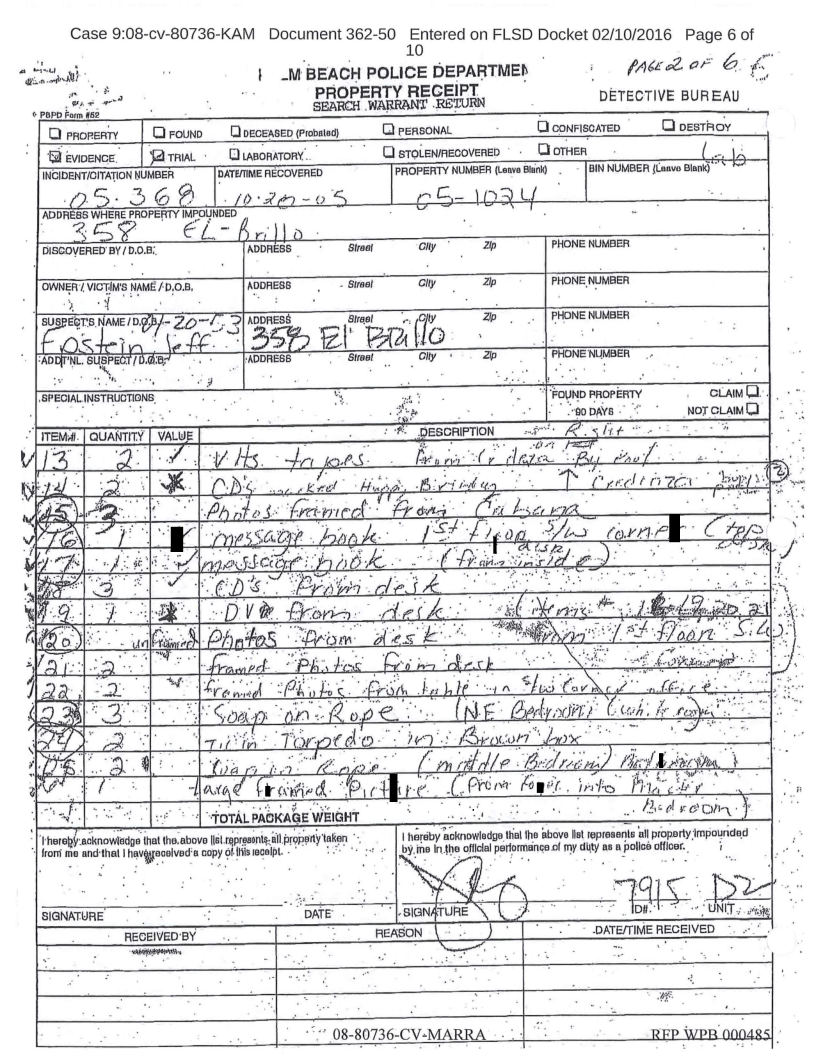 Case 9:08-cv-80736-KAM Document 362-50 Entered on FLSD Docket 02/10/2016 Page 6 of
10
PAGE 2 OF 6
M BEACH POLICE DEPARTMEN
PROPERTY RECEIPT
SEARCH WARRANT RETURN
DETECTIVE BUREAU
PBPD Form #52
PROPERTY FOUND DECEASED (Probated) PERSONAL CONFISCATED DESTROY
EVIDENCE TRIAL LABORATORY STOLEN/RECOVERED OTHER Lab
INCIDENT/CITATION NUMBER DATE/TIME RECOVERED PROPERTY NUMBER (Leave Blank) BIN NUMBER (Leave Blank)
05-368 10-20-05 05-1024
ADDRESS WHERE PROPERTY IMPOUNDED
358 EL-Brillo
DISCOVERED BY / D.O.B. ADDRESS Street City Zip PHONE NUMBER
OWNER / VICTIM'S NAME / D.O.B. ADDRESS Street City Zip PHONE NUMBER
SUSPECT'S NAME / D.O.B. 01-20-53 ADDRESS Street City Zip PHONE NUMBER
Epstein Jeff 358 El Brillo
ADDIT'NL. SUSPECT / D.O.B. ADDRESS Street City Zip PHONE NUMBER
SPECIAL INSTRUCTIONS FOUND PROPERTY CLAIM
90 DAYS NOT CLAIM
ITEM# QUANTITY VALUE DESCRIPTION Right
13 2 VHS tapes From Credenza By Pool
14 2 CD's marked Happy Birthday Credenza
15 3 Photos framed from Cabana
16 1 message book 1st floor S/W corner (top desk
17 1 message book (from inside) desk
18 3 CD's From desk
19 1 from desk
20 unframed Photos from desk from 1st floor S.W.
21 2 framed Photos from desk
22 2 framed Photos from table in S/W Corner office
23 3 Soap on Rope (NE Bedroom)
24 2 Torpedo in Brown box
25 2 Rope (middle Bedroom)
1 Large framed Picture (From into Master
Bedroom)
TOTAL PACKAGE WEIGHT
I hereby acknowledge that the above list represents all property taken
from me and that I have received a copy of this receipt.
I hereby acknowledge that the above list represents all property impounded
by me in the official performance of my duty as a police officer.
7915 D2
SIGNATURE DATE SIGNATURE ID# UNIT
RECEIVED BY REASON DATE/TIME RECEIVED
08-80736-CV-MARRA RFP WPB 000485